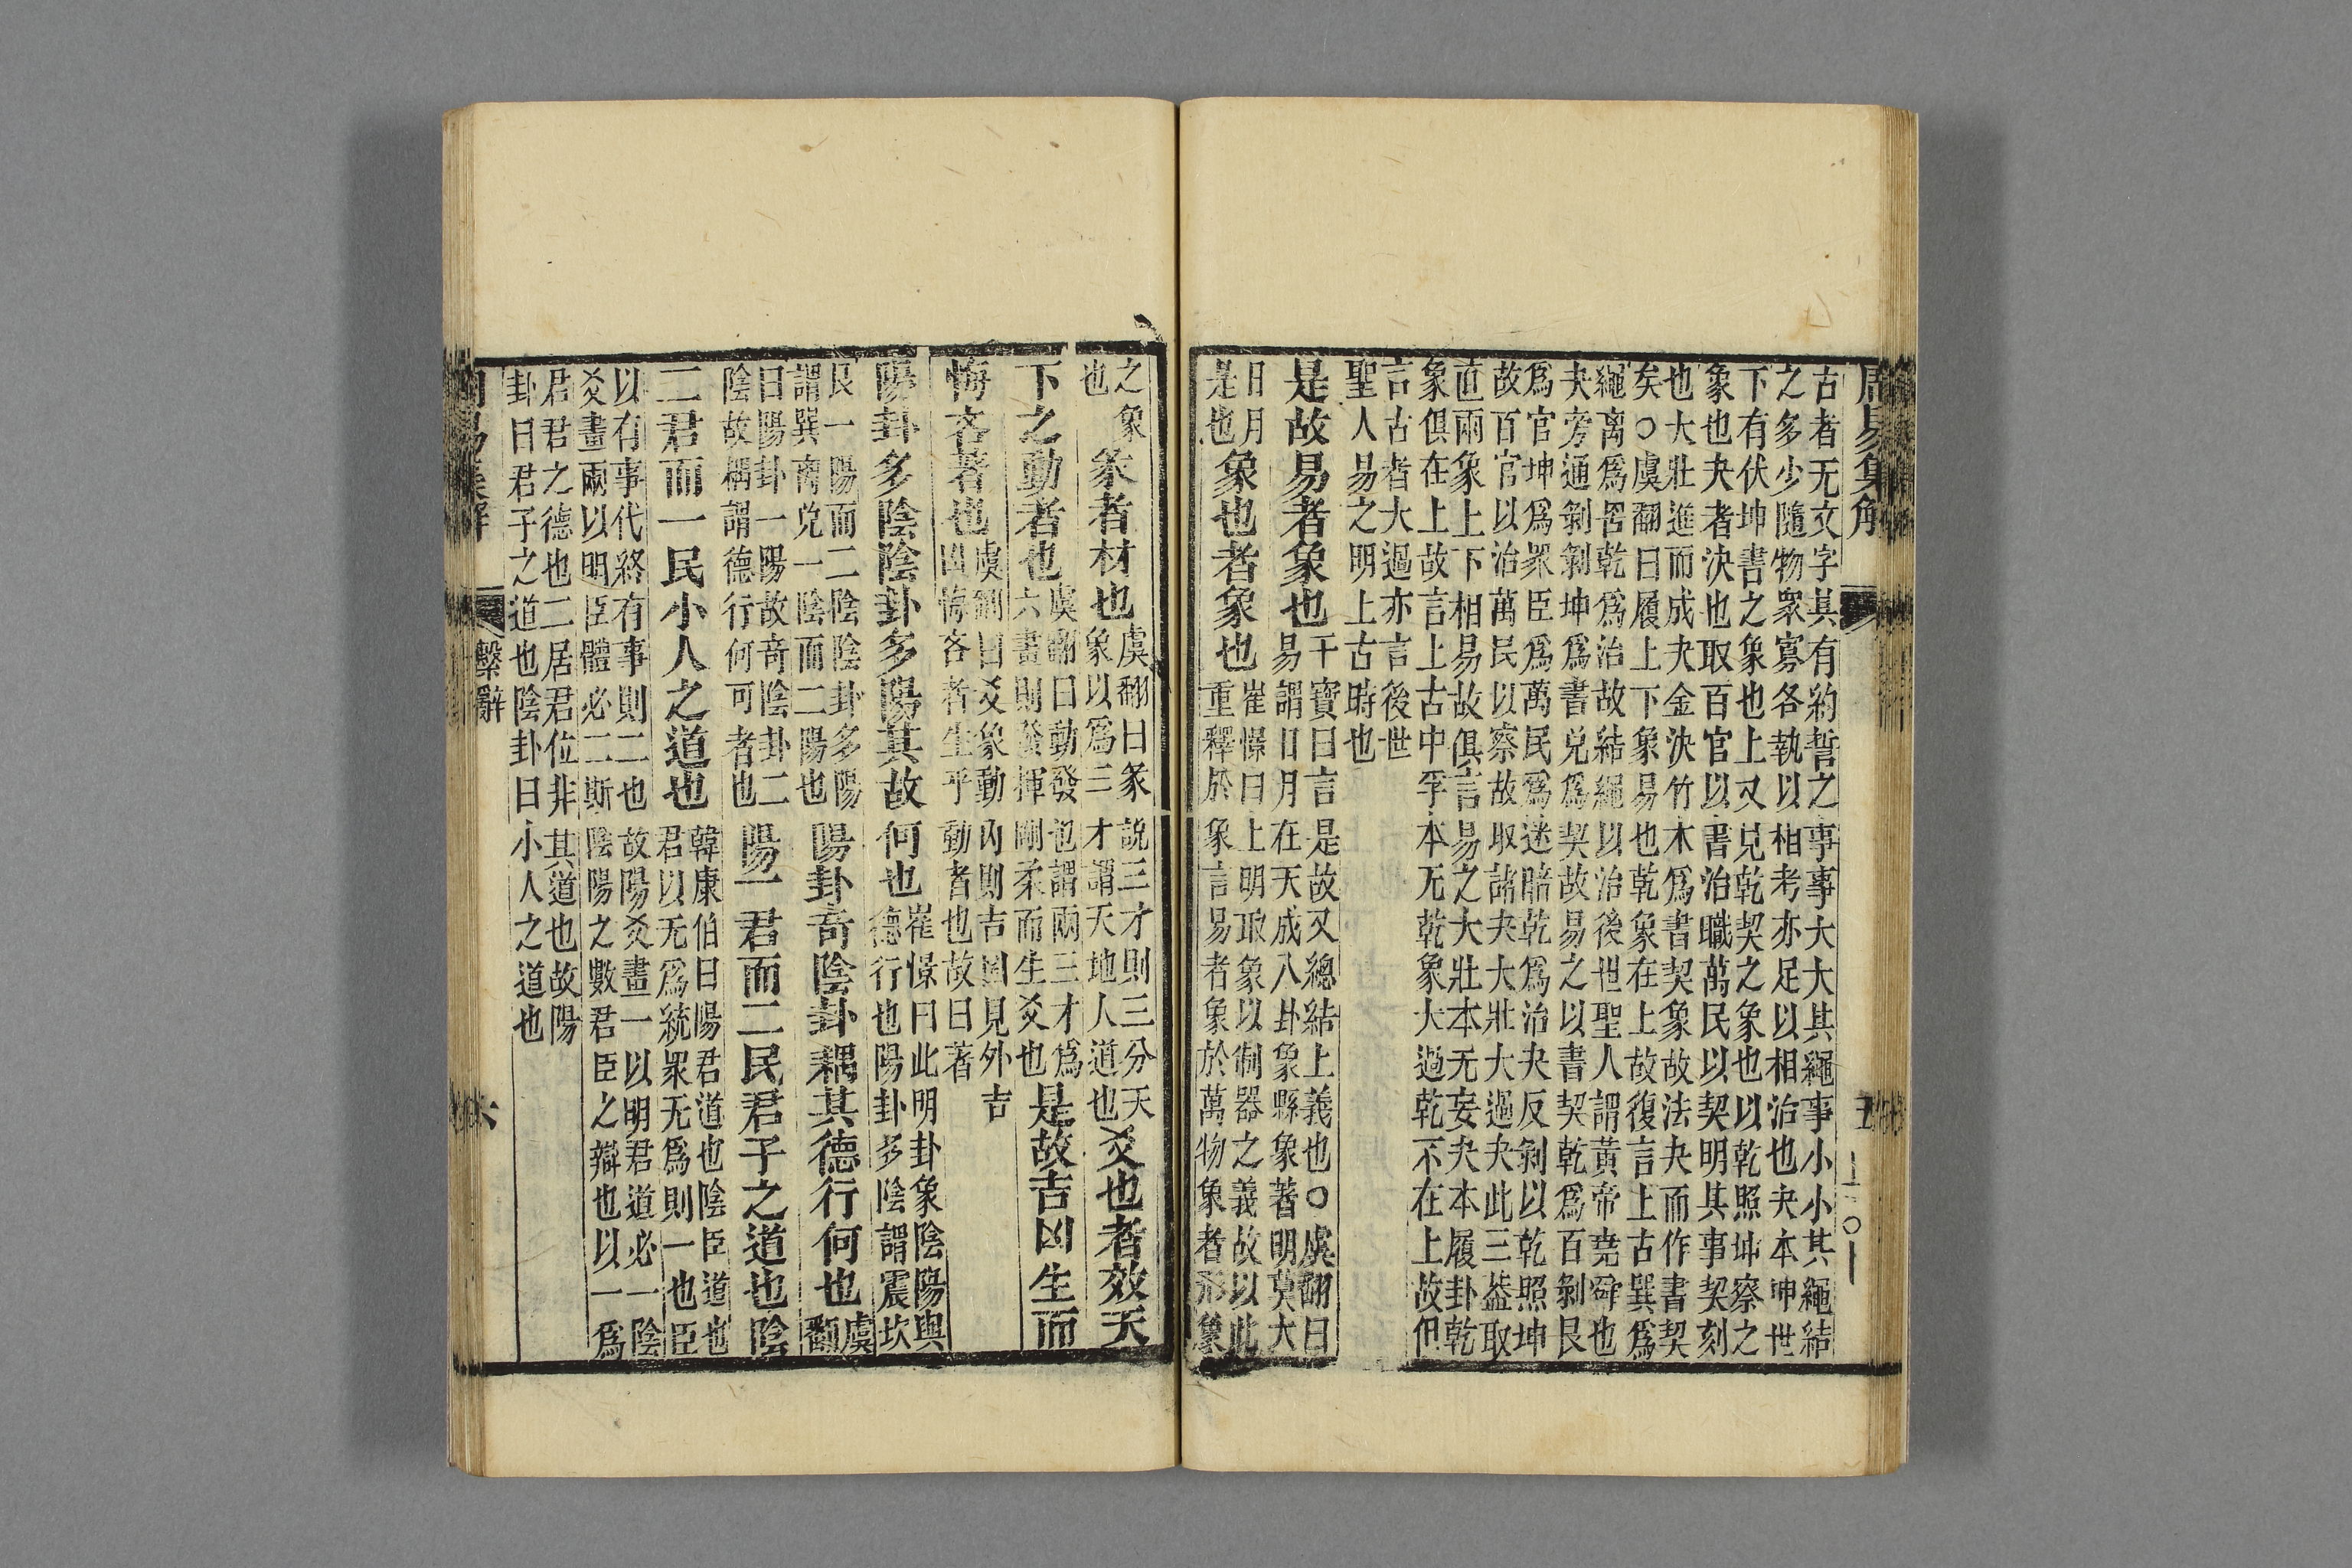 周易集解 五
古者无文字其有約誓之事事大大其繩事小小其繩結
之多少隨物衆寡各執以相考亦足以相治也夬本坤世
下有伏坤書之象也上又兌乾契之象也以乾照坤察之
象也夬者決也取百官以書治職萬民以契明其事契刻
也大壯進而成夬金決竹木爲書契象故法夬而作書契
矣○虞翻曰履上下象易也乾象在上故復言上古巽爲
繩離爲罟乾爲治故結繩以治後世聖人謂黃帝堯舜也
夬旁通剝剝坤爲書兌爲契故易之以書契乾爲百剝艮
爲官坤爲衆臣爲萬民爲迷暗乾爲治夬反剝以乾照坤
故百官以治萬民以察故取諸夬大壯大過夬此三蓋取
直兩象上下相易故俱言易之大壯本无妄夬本履卦乾
象俱在上故言上古中孚本无乾象大過乾不在上故但
言古者大過亦言後世
聖人易之明上古時也
是故易者象也
干寶曰言是故又總結上義也○虞翻曰
易謂日月在天成八卦象縣象著明莫大
日月
是也
象也者象也
崔憬曰上明取象以制器之義故以此
重釋於象言易者象於萬物象者形象
之象
也
彖者材也
虞翻曰彖說三才則三分天
象以爲三才謂天地人道也
爻也者效天
下之動者也
虞翻曰動發也謂兩三才爲
六畫則發揮剛柔而生爻也
是故吉凶生而
悔吝著也
虞翻曰爻象動內則吉凶見外吉
凶悔吝者生乎動者也故曰著
陽卦多陰陰卦多陽其故何也
崔憬曰此明卦象陰陽與
德行也陽卦多陰謂震坎
艮一陽而二陰陰卦多陽
謂巽离兌一陰而二陽也
陽卦奇陰卦耦其德行何也
虞
翻
曰陽卦一陽故奇陰卦二
陰故耦謂德行何可者也
陽一君而二民君子之道也陰
二君而一民小人之道也
韓康伯曰陽君道也陰臣道也
君以无爲統衆无爲則一也臣
以有事代終有事則二也故陽爻畫一以明君道必一陰
爻畫兩以明臣體必二斯陰陽之數君臣之辯也以一爲
君君之德也二居君位非其道也故陽
卦曰君子之道也陰卦曰小人之道也
周易集解 繫辭 六